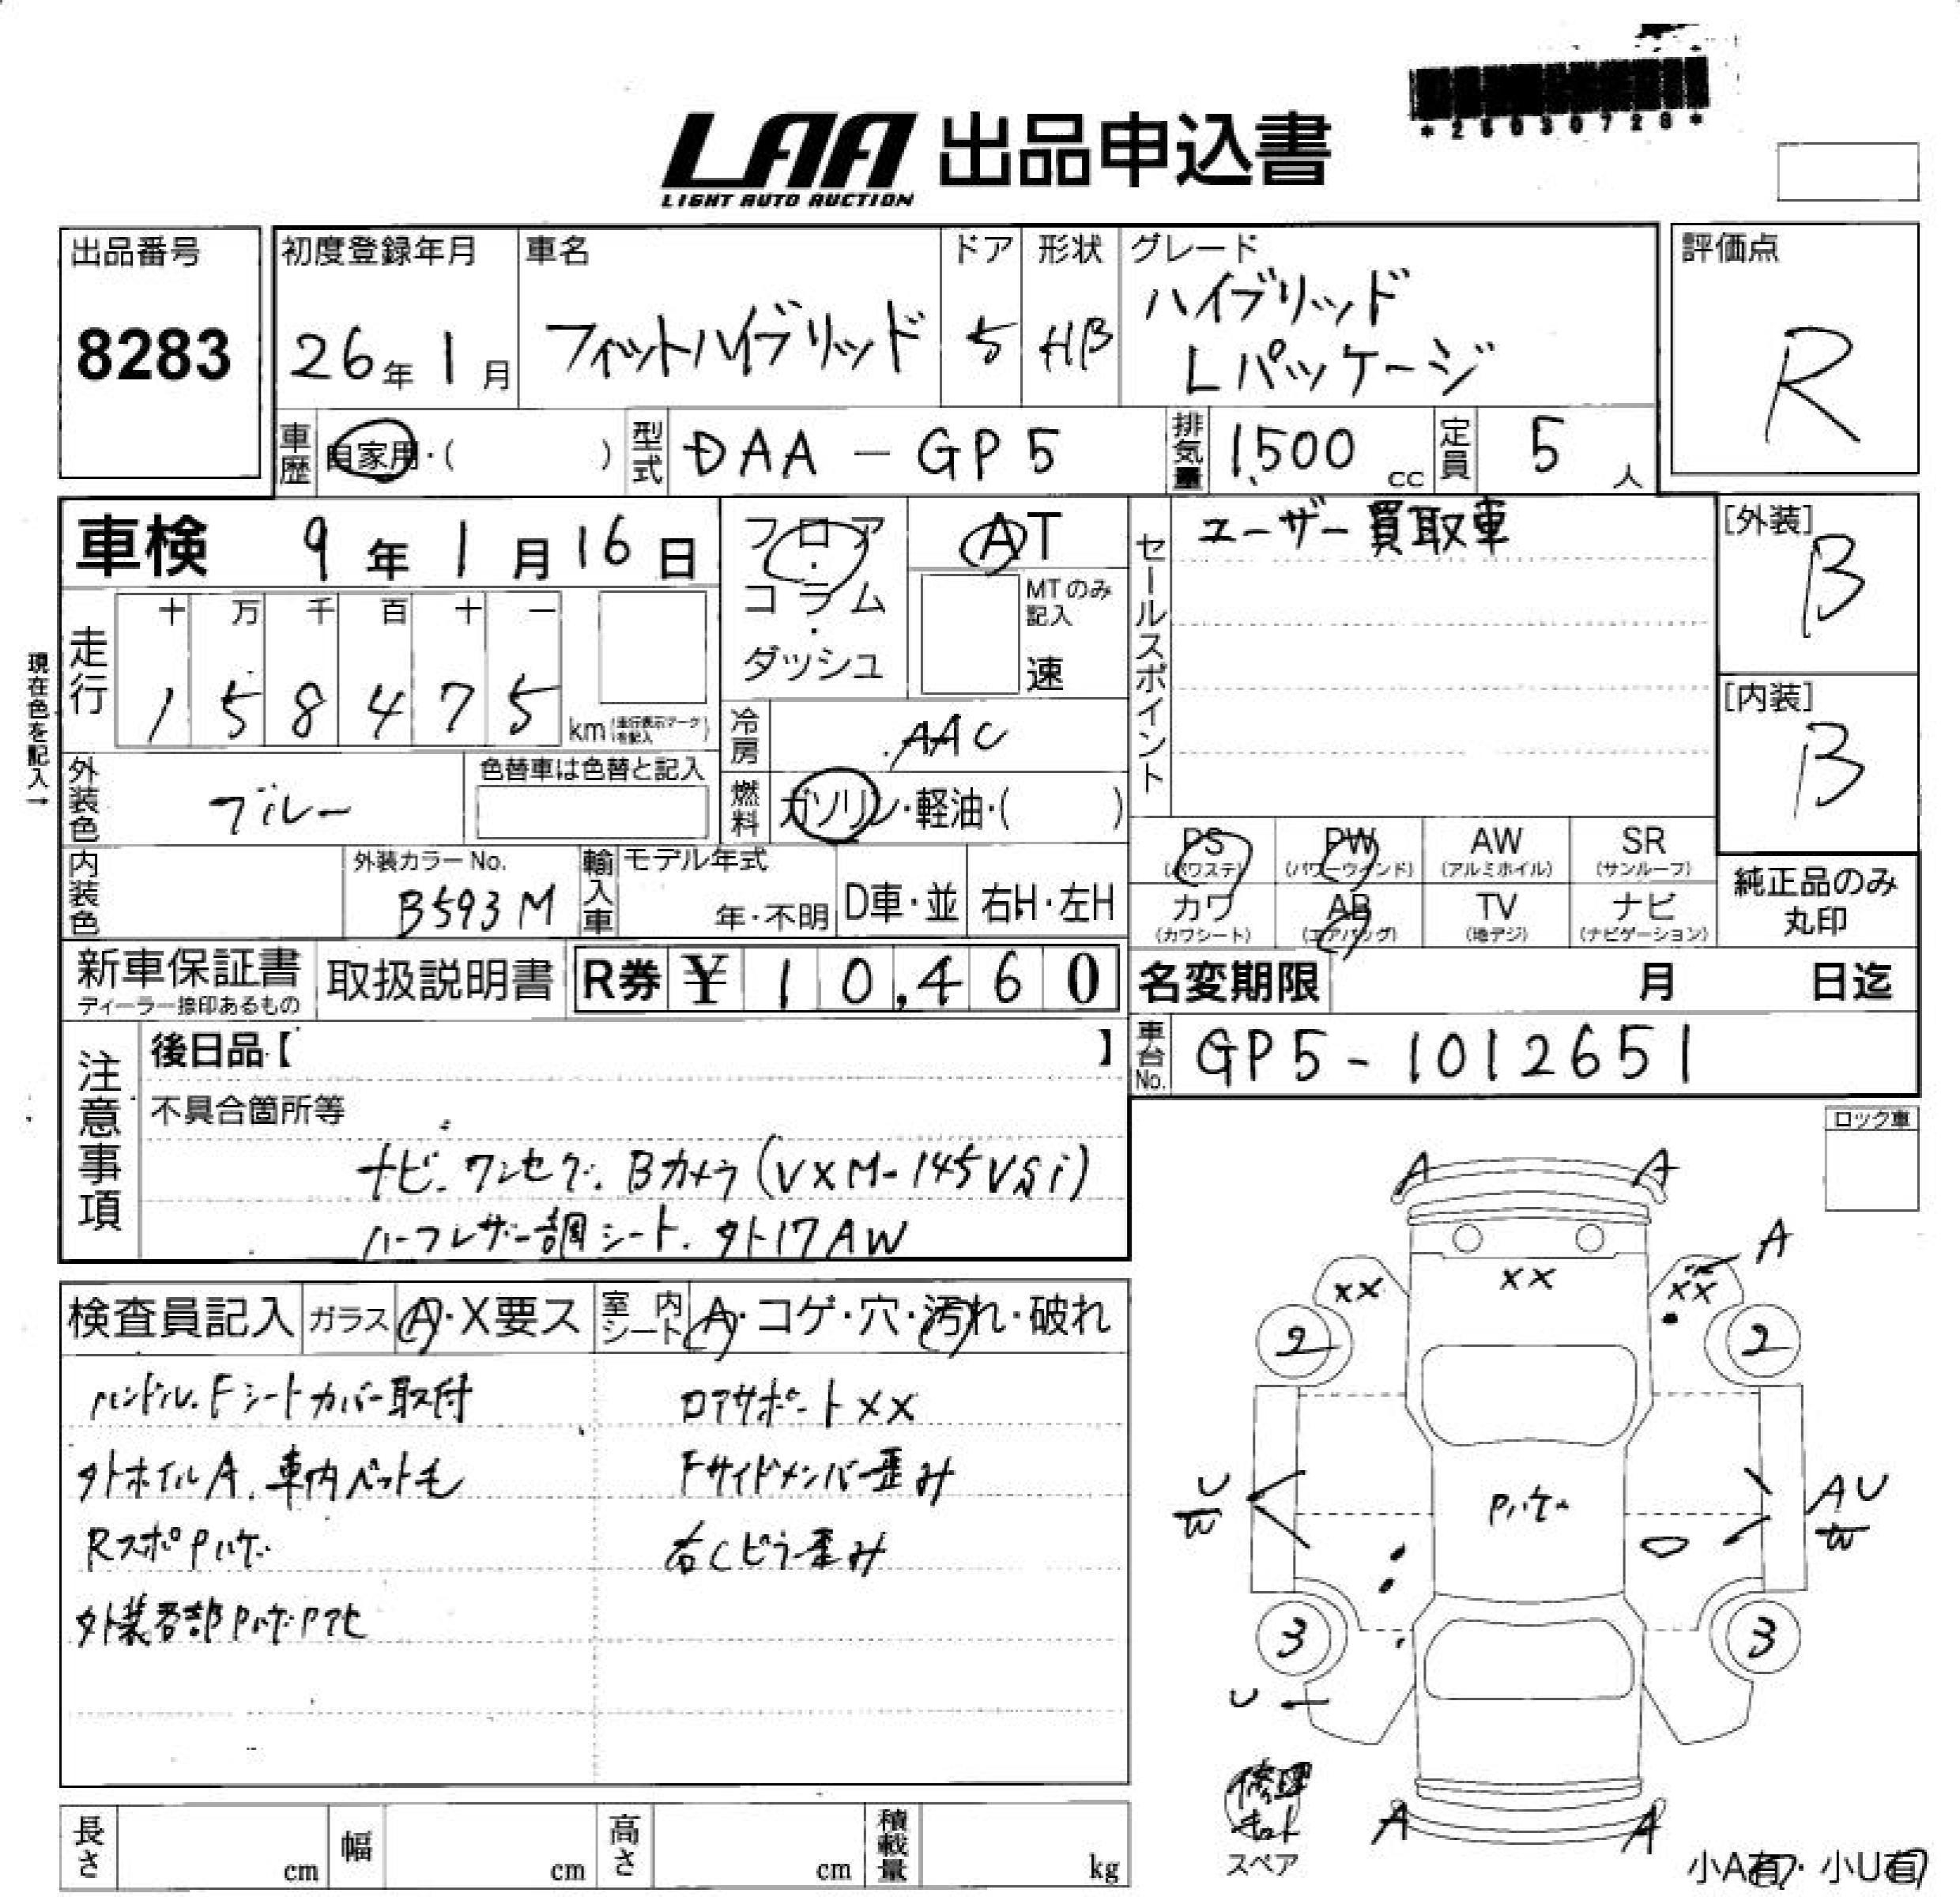 LAA 出品申込書
LIGHT AUTO AUCTION
出品番号
8283
初度登録年月
26年 1月
車名
フィットハイブリッド
ドア
5
形状
HB
グレード
ハイブリッド
Lパッケージ
評価点
R
車歴
自家用・( )
型式
DAA-GP5
排気量
1,500 cc
定員
5 人
車検 9年 1月 16日
フロア・コラム・ダッシュ
AT
MTのみ記入
速
セールスポイント
ユーザー買取車
[外装]
B
[内装]
B
現在色を記入→
走行
十 万 千 百 十 一
1 5 8 4 7 5
km (走行表示マークを記入)
冷房
AAC
外装色
ブルー
色替車は色替と記入
燃料
ガソリン・軽油・( )
内装色
外装カラーNo.
B593M
輸入車
モデル年式
年・不明
D車・並
右H・左H
PS (パワステ)
PW (パワーウインド)
AW (アルミホイル)
SR (サンルーフ)
カワ (カワシート)
AB (エアバッグ)
TV (地デジ)
ナビ (ナビゲーション)
純正品のみ丸印
新車保証書
ディーラー捺印あるもの
取扱説明書
R券 ¥ 10,460
名変期限 月 日迄
車台No.
GP5-1012651
注意事項
後日品【 】
不具合箇所等
ナビ.ワンセグ.Bカメラ(VXM-145VSi)
ハーフレザー調シート.外17AW
ロック車
検査員記入
ガラス
A・X要ス
室内シート
A・コゲ・穴・汚れ・破れ
ハンドル.Fシートカバー取付
外ホイルA.車内ペット毛
RスポPハゲ
外装各部Pハゲ.Pアセ
ロアサポートXX
Fサイドメンバー歪み
右Cピラー歪み
A A
A
XX XX XX
2 2
U
W
Pハゲ
AU
W
3 3
U
修理キット
スペア
A A
小A有・小U有
長さ cm
幅 cm
高さ cm
積載量 kg